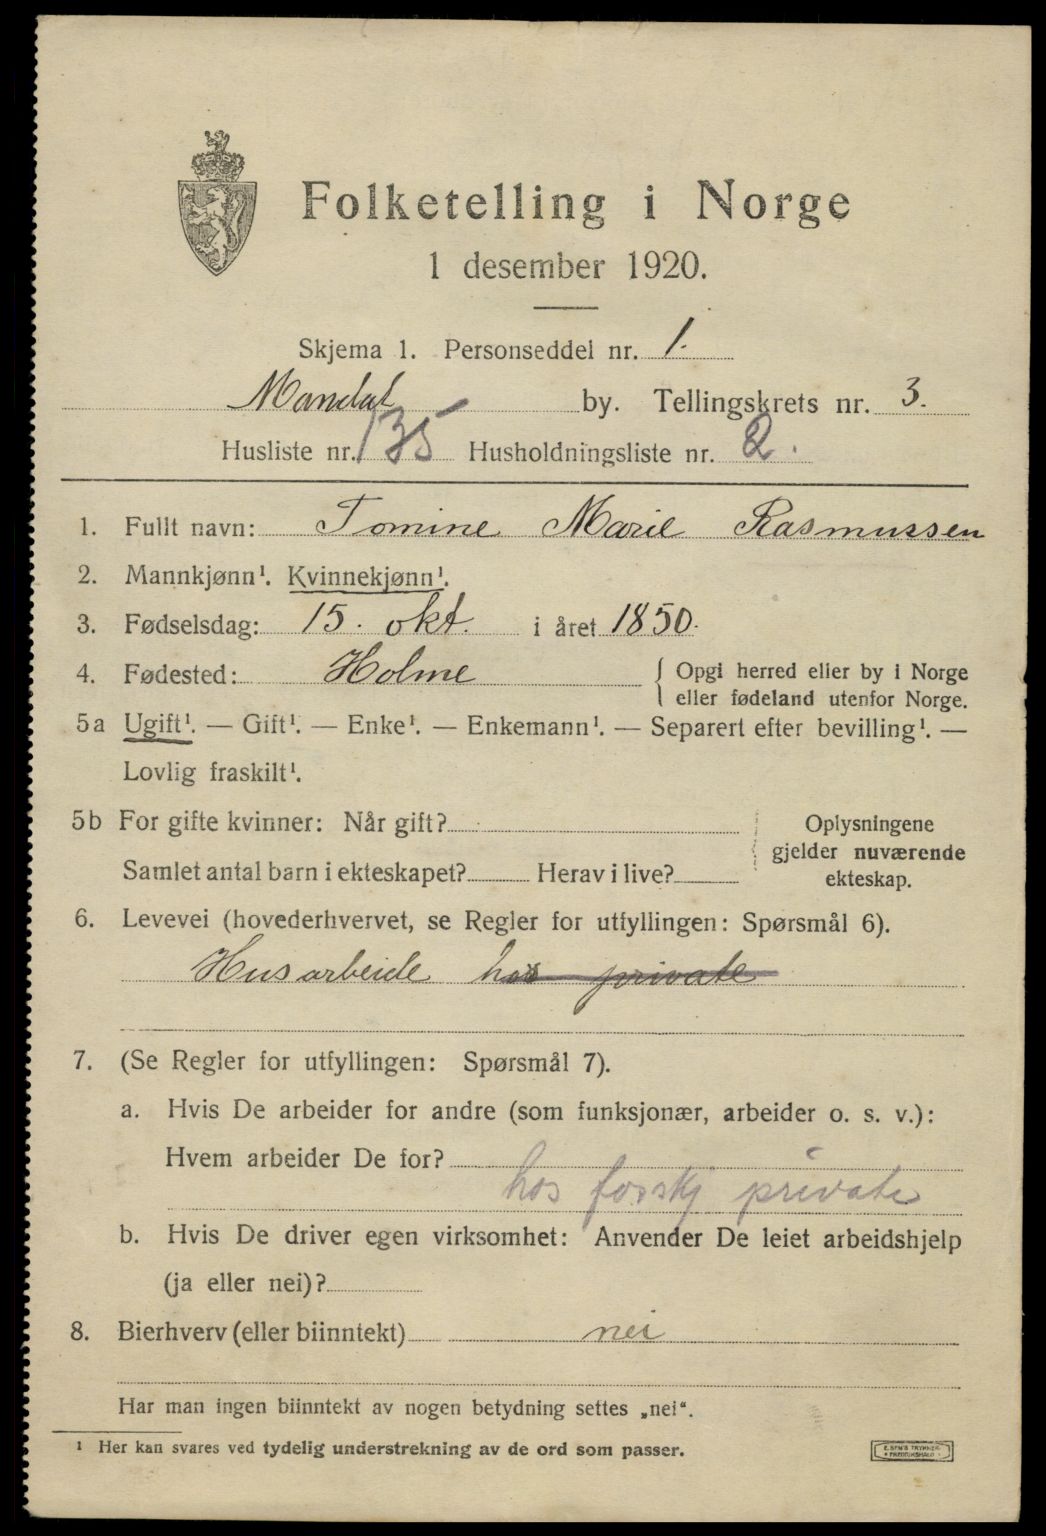 Folketelling i Norge
1 desember 1920.
Skjema 1. Personseddel nr. 1.
Mandal by. Tellingskrets nr. 3.
Husliste nr. 135 Husholdningsliste nr. 2.
1. Fullt navn: Tomine Marie Rasmussen
2. Mannkjønn¹. Kvinnekjønn¹.
3. Fødselsdag: 15. okt. i året 1850.
4. Fødested: Holme { Opgi herred eller by i Norge
eller fødeland utenfor Norge.
5a Ugift¹. — Gift¹. — Enke¹. — Enkemann¹. — Separert efter bevilling¹. —
Lovlig fraskilt¹.
5b For gifte kvinner: Når gift?
Samlet antal barn i ekteskapet? Herav i live?
Oplysningene
gjelder nuværende
ekteskap.
6. Levevei (hovederhvervet, se Regler for utfyllingen: Spørsmål 6).
Husarbeide hos private
7. (Se Regler for utfyllingen: Spørsmål 7).
a. Hvis De arbeider for andre (som funksjonær, arbeider o. s. v.):
Hvem arbeider De for?
hos forskj private
b. Hvis De driver egen virksomhet: Anvender De leiet arbeidshjelp
(ja eller nei)?
8. Bierhverv (eller biinntekt) nei
Har man ingen biinntekt av nogen betydning settes „nei“.
¹ Her kan svares ved tydelig understrekning av de ord som passer.